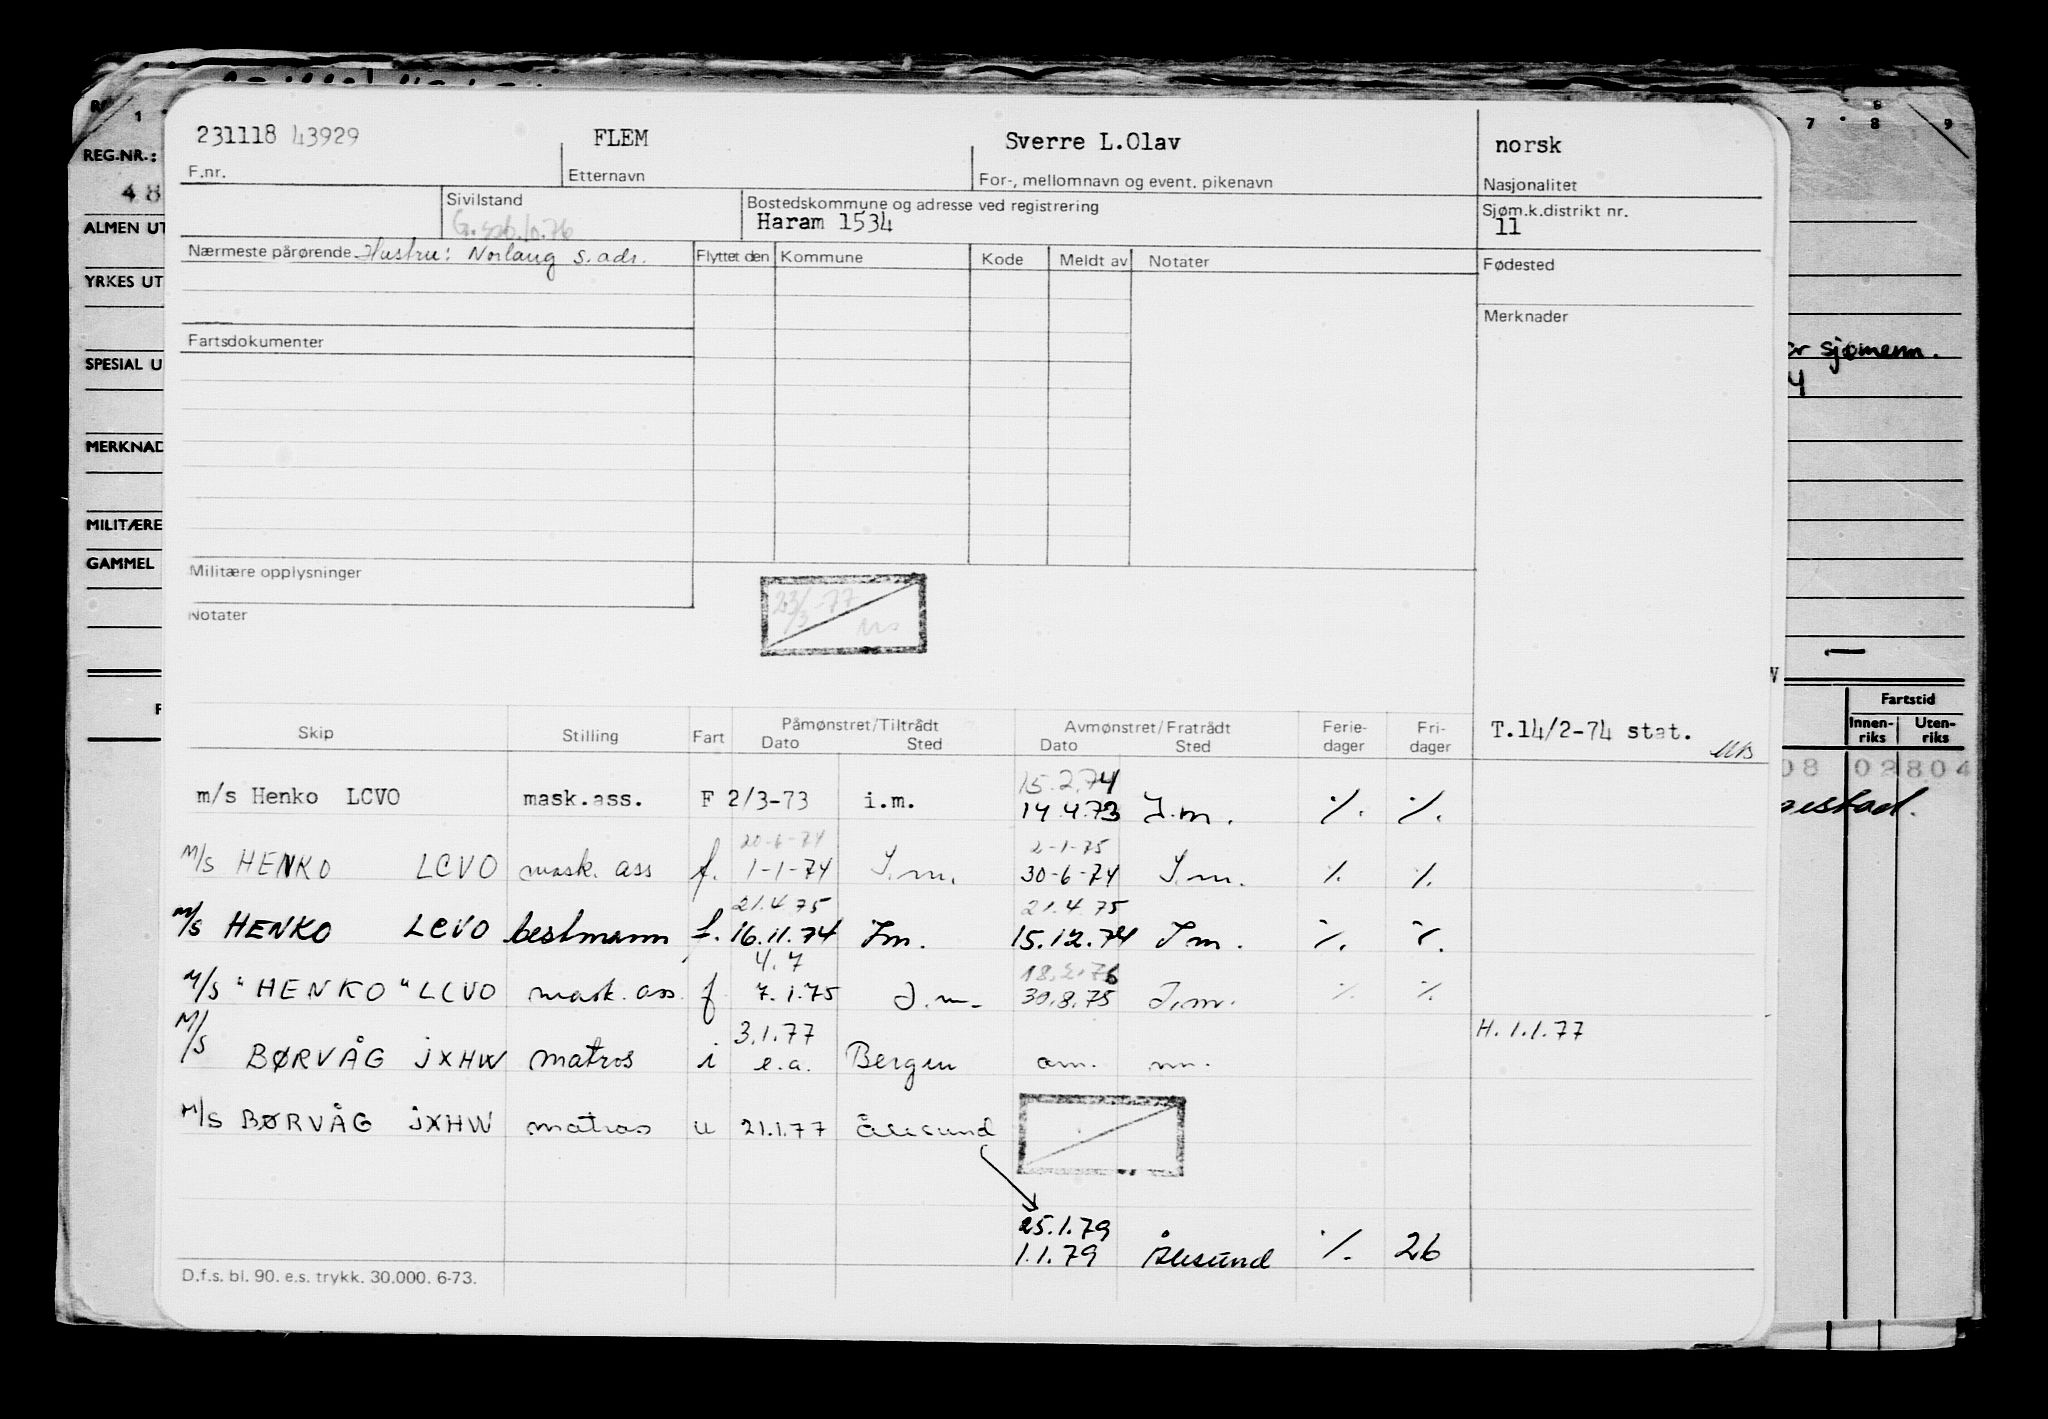 231118 43929 FLEM Sverre L.Olav norsk
F.nr. Etternavn For-, mellomnavn og event. pikenavn Nasjonalitet
Sivilstand Bostedskommune og adresse ved registrering Sjøm.k.distrikt nr.
Haram 1534 11
Nærmeste pårørende Hustru: Norlaug s. adr. Flyttet den Kommune Kode Meldt av Notater Fødested
Merknader
Fartsdokumenter
Militære opplysninger
Notater
23/3-77
Skip Stilling Fart Påmønstret/Tiltrådt Dato Sted Avmønstret/Fratrådt Dato Sted Ferie-dager Fri-dager T.14/2-74 stat.
15.2.74
m/s Henko LCVO mask.ass. F 2/3-73 i.m. 14.4.73 I.m. ٪. ٪.
20-6-74 2-1-75
M/s HENKO LCVO mask. ass f. 1-1-74 I.m. 30-6-74 I.m. ٪. ٪.
21.4.75 21.4.75
M/s HENKO LCVO bestmann f. 16.11.74 Im. 15.12.74 Im. ٪. ٪.
4.7 18.2.76
M/s "HENKO" LCVO mask. ass. f 7.1.75 I.m. 30.8.75 I.m. ٪. ٪.
3.1.77 H. 1.1.77
M/s BØRVÅG JXHW matros i e.a. Bergen am. nn.
M/s BØRVÅG JXHW matros u 21.1.77 Ålesund
25.1.79
1.1.79 Ålesund ٪. 26
D.f.s. bl. 90. e.s. trykk. 30.000. 6-73.
REG.NR.:
48
ALMEN UT
YRKES UT
SPESIAL U
MERKNAD
MILITÆRE
GAMMEL
F
1
7 8 9
sjømenn.
4
Fartstid
Innen-riks Uten-riks
08 02804